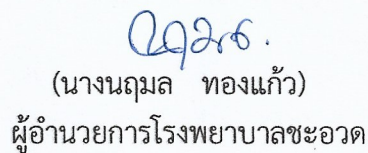 (นางนฤมล ทองแก้ว)
ผู้อำนวยการโรงพยาบาลชะอวด